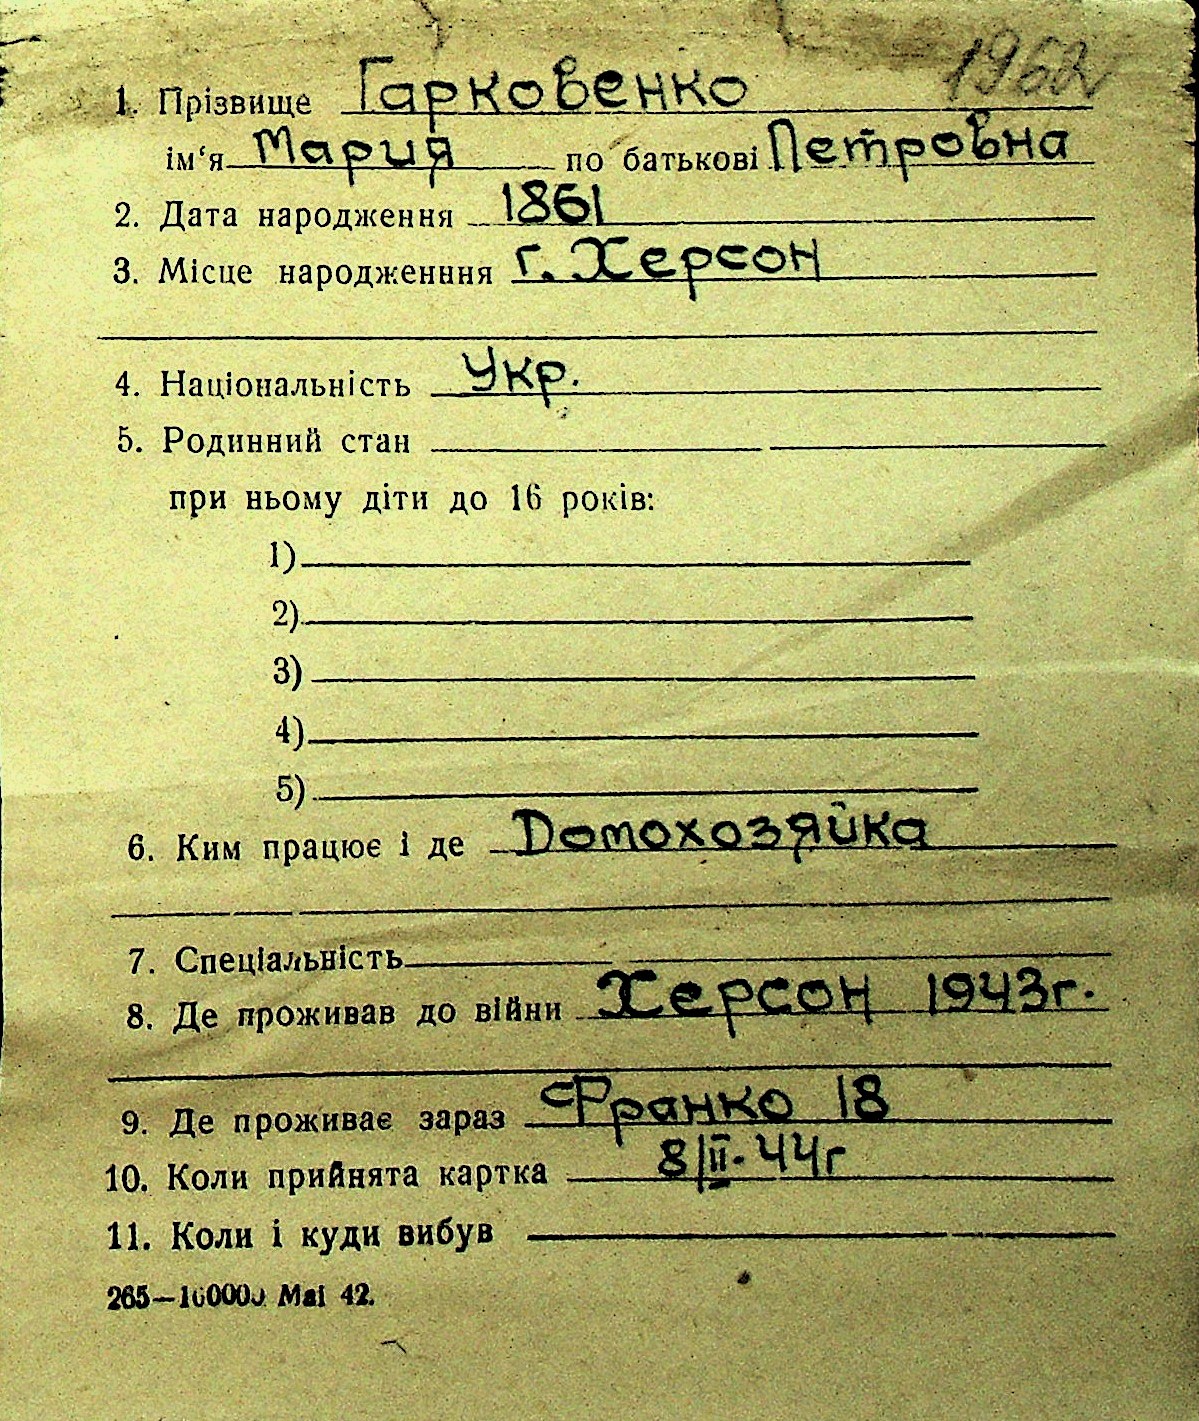 1962
1. Прізвище Гарковенко
ім‘я Мария по батькові Петровна
2. Дата народження 1861
3. Місце народженння г. Херсон
4. Національність Укр.
5. Родинний стан
при ньому діти до 16 років:
1)
2)
3)
4)
5)
6. Ким працює і де Домохозяйка
7. Спеціальність
8. Де проживав до війни Херсон 1943г.
9. Де проживає зараз Франко 18
10. Коли прийнята картка 8/II-44г
11. Коли і куди вибув
265—100000 Mai 42.